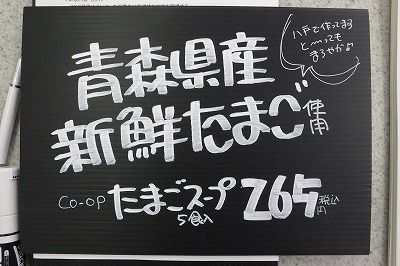 八戸で作ってます
とーっても
まろやかよ
青森県産
新鮮たまご使用
CO-OP たまごスープ 265円税込
5食入